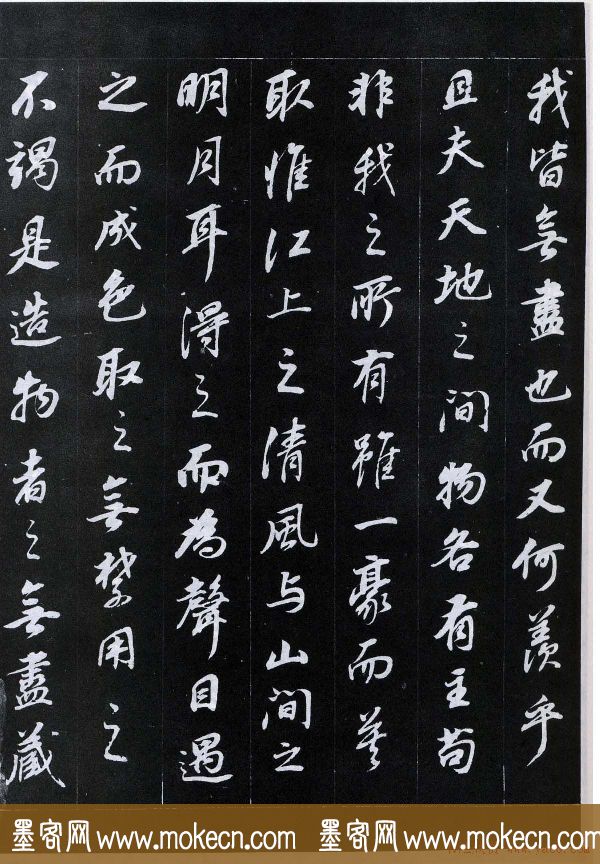 我皆無盡也而又何羨乎
且夫天地之間物各有主苟
非我之所有雖一豪而莫
取惟江上之清風与山間之
明月耳得之而為聲目遇
之而成色取之無禁用之
不竭是造物者之無盡藏
墨客网 www.mokecn.com 墨客网 www.mokecn.com